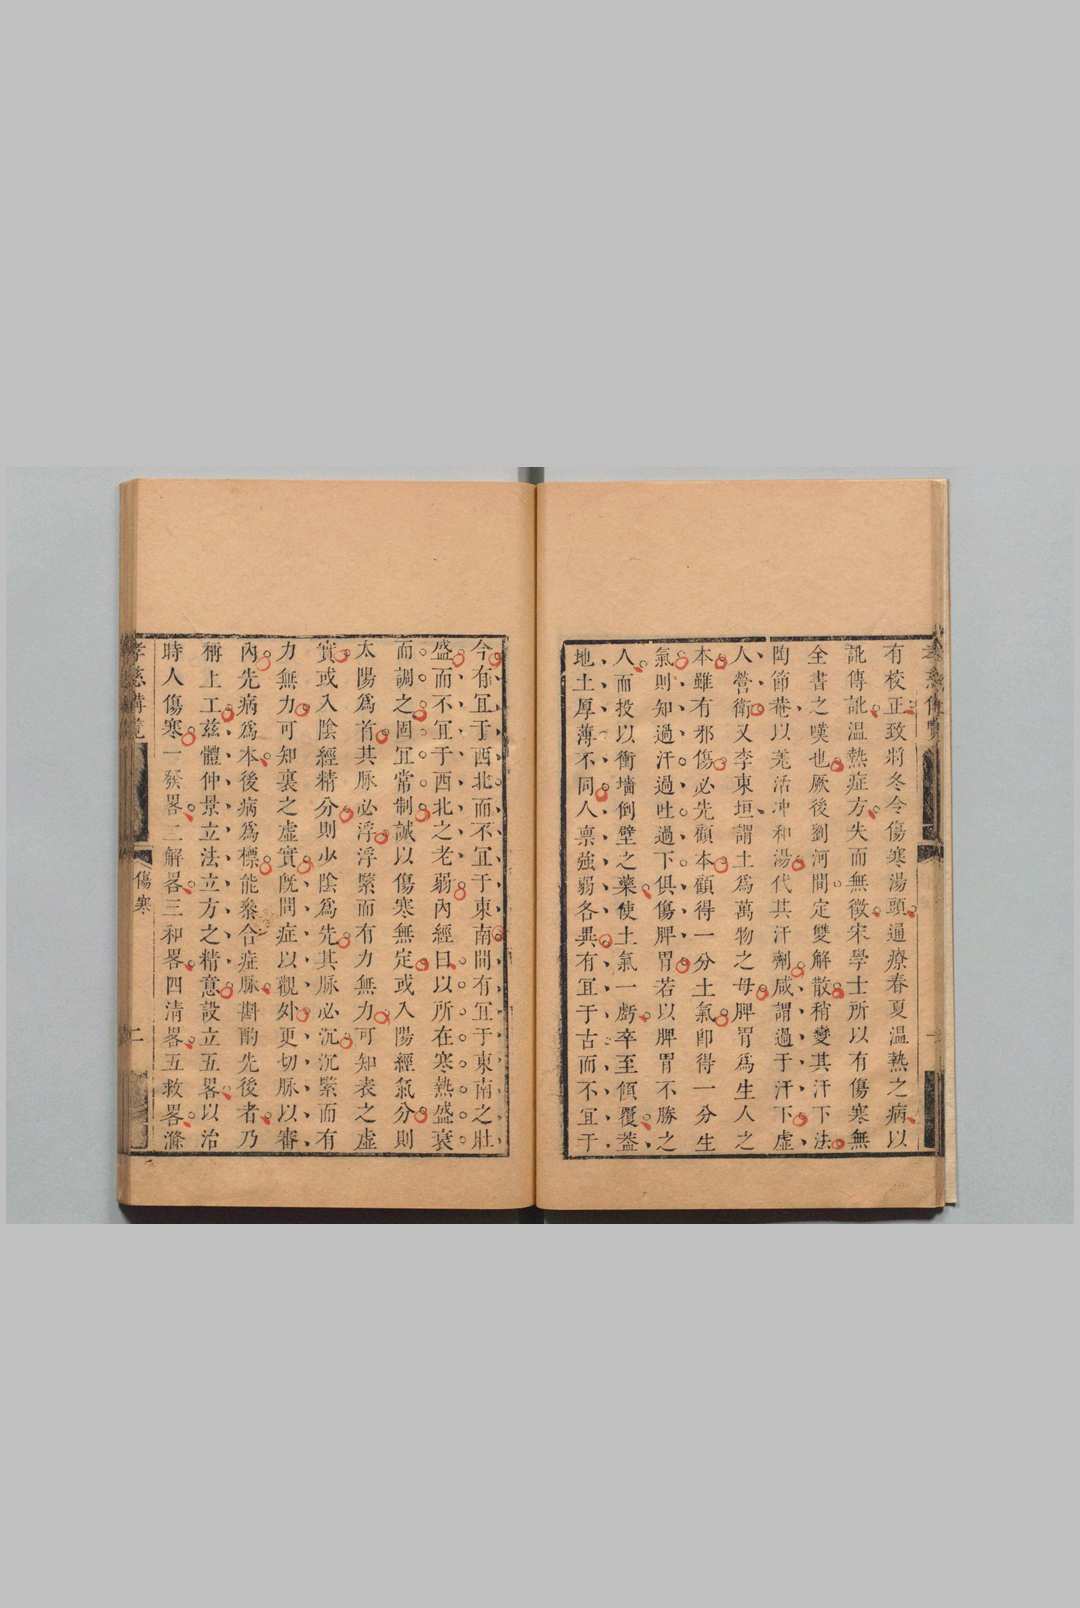 有校正致將冬令傷寒湯頭通療春夏溫熱之病以
訛傳訛溫熱症方失而無徵宋學士所以有傷寒無
全書之嘆也厥後劉河間定雙解散稍變其汗下法
陶節菴以羌活冲和湯代其汗劑咸謂過于汗下虛
人營衛又李東垣謂土爲萬物之母脾胃爲生人之
本雖有邪傷必先顧本顧得一分土氣卽得一分生
氣則知過汗過吐過下俱傷脾胃若以脾胃不勝之
人而投以衝墻倒壁之藥使土氣一虧卒至傾覆葢
地土厚薄不同人禀強弱各異有宜于古而不宜于
今有宜于西北而不宜于東南間有宜于東南之壯
盛而不宜于西北之老弱內經曰以所在寒熱盛衰
而調之固宜常制誠以傷寒無定或入陽經氣分則
太陽爲首其脉必浮浮緊而有力無力可知表之虛
實或入陰經精分則少陰爲先其脉必沉沉緊而有
力無力可知裏之虛實旣問症以觀外更切脉以審
內先病爲本後病爲標能叅合症脉斟酌先後者乃
稱上工兹體仲景立法立方之精意設立五畧以治
時人傷寒一發畧二解畧三和畧四清畧五救畧滌
傷寒
二